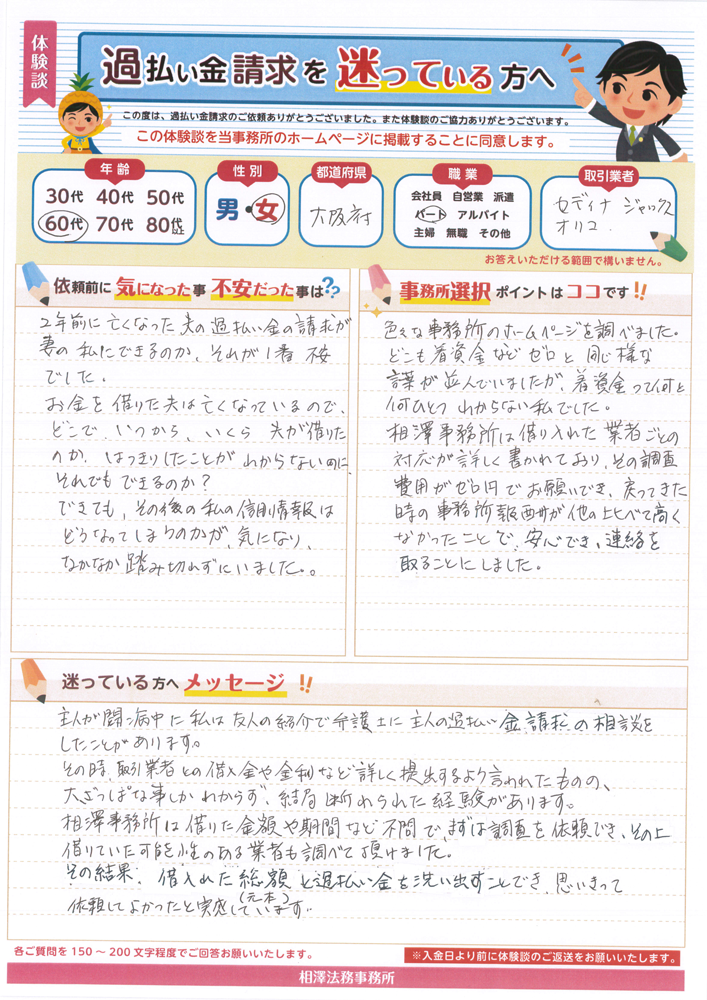 体験談
過払い金請求を迷っている方へ
この度は、過払い金請求のご依頼ありがとうございました。また体験談のご協力ありがとうございます。
この体験談を当事務所のホームページに掲載することに同意します。
年齢
30代 40代 50代
60代 70代 80代以上
性別
男・女
都道府県
大阪府
職業
会社員 自営業 派遣
パート アルバイト
主婦 無職 その他
取引業者
ジャックス
オリコ
お答えいただける範囲で構いません。
依頼前に気になった事 不安だった事は??
2年前に亡くなった夫の過払い金の請求が
妻の私にできるのか、それが1番 不安
でした。
お金を借りた夫は亡くなっているので、
どこで、いつから、いくら 夫が借りた
のか、はっきりしたことがわからないのに、
それでもできるのか?
できても、その後の私の信用情報は
どうなってしまうのかが、気になり、
なかなか踏み切れずにいました。。
事務所選択 ポイントはココです!!
色々な事務所のホームページを調べました。
どこも着資金などゼロと同じ様な
言葉が並んでいましたが、着資金って何と
何ひとつわからない私でした。
相澤事務所は借り入れた業者ごとの
対応が詳しく書かれており、その調査
費用がゼロ円でお願いでき、戻ってきた
時の事務所報酬が他の比べて高く
なかったことで、安心でき、連絡を
取ることにしました。
迷っている方へメッセージ!!
主人が闘病中に私は友人の紹介で弁護士に主人の過払い金請求の相談を
したことがあります。
その時、取引業者との借入金や金利など詳しく提出するよう言われたものの、
大ざっぱな事しかわからず、結局断わられた経験があります。
相澤事務所は借りた金額や期間など不問で、まずは調査を依頼でき、その上
借りていた可能性のある業者も調べて頂けました。
その結果、借入れた総額(元本)と過払い金を洗い出すことでき、思いきって
依頼してよかったと実感しています。
各ご質問を150~200文字程度でご回答お願いいたします。
※入金日より前に体験談のご返送をお願いいたします。
相澤法務事務所